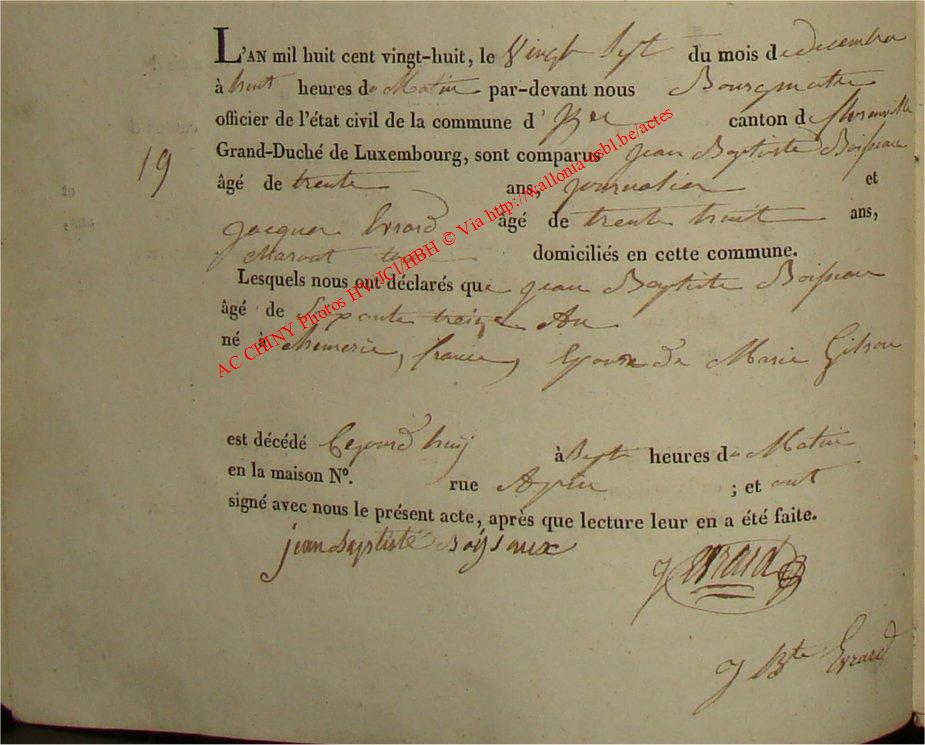 L'AN mil huit cent vingt-huit, le Vingt Sept du mois de decembre
à huit heures de Matin par-devant nous Bourgmestre
officier de l'état civil de la commune d'Izel canton de florenville
19
Grand-Duché de Luxembourg, sont comparus jean Baptiste Boisseau
âgé de trente ans, journalier et
jacques Evrard âgé de trente huit ans,
domiciliés en cette commune.
Lesquels nous ont déclarés que jean Baptiste Boisseau
âgé de Soixante treize An
né à chemerie, france, Epoux de Marie Gilson
est décédé Cejourd huy à Sept heures de Matin
en la maison N°. rue ; et ont
signé avec nous le présent acte, après que lecture leur en a été faite.
jean baptiste Boisseaux
J Evrard
J Bte Evrard
AC CHINY Photos HWJGI/HBH © Via http://wallonia-asbl.be/actes